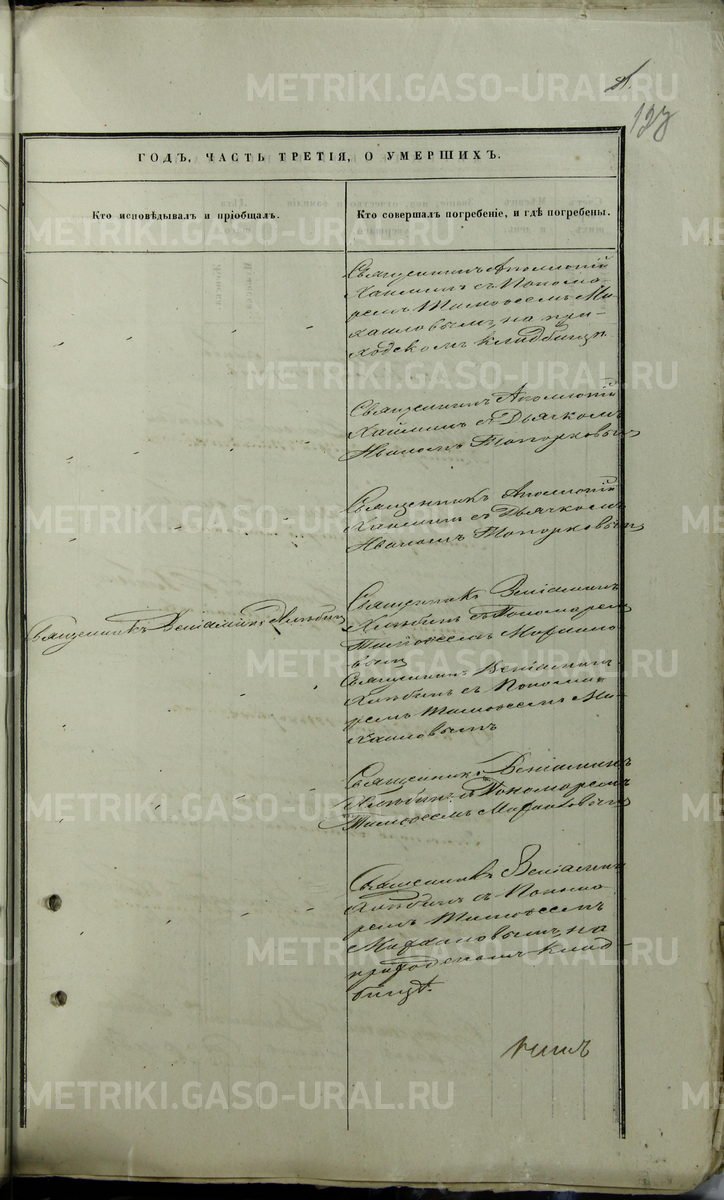 METRIKI.GASO-URAL.RU
127
ГОДЪ, ЧАСТЬ ТРЕТІЯ, О УМЕРШИХЪ.
Кто исповѣдывалъ и пріобщалъ.
Кто совершалъ погребеніе, и гдѣ погребены.
Священникъ Аполлоній
Хаминъ съ Понома-
ремъ Тимоѳеемъ Ми-
хаиловымъ, на при-
ходскомъ кладбищѣ
Священникъ Аполлоній
съ Дьячкомъ
Иваномъ Топорковымъ
Священникъ Аполлоній
съ Дьячкомъ
Иваномъ Топорковымъ
Священникъ Веніаминъ Хлѣбинъ
Священникъ Веніаминъ
Хлѣбинъ съ Пономаремъ
Тимоѳеемъ Михаило-
вымъ
Священникъ Веніаминъ
Хлѣбинъ съ Понома-
ремъ Тимоѳеемъ Ми-
хаиловымъ
Священникъ Веніаминъ
Хлѣбинъ съ Пономаремъ
Тимоѳеемъ Михаиловымъ
Священникъ Веніаминъ
Хлѣбинъ съ Понома
ремъ Тимоѳеемъ
Михаиловымъ, на
приходскомъ клад-
бищѣ.
METRIKI.GASO-URAL.RU